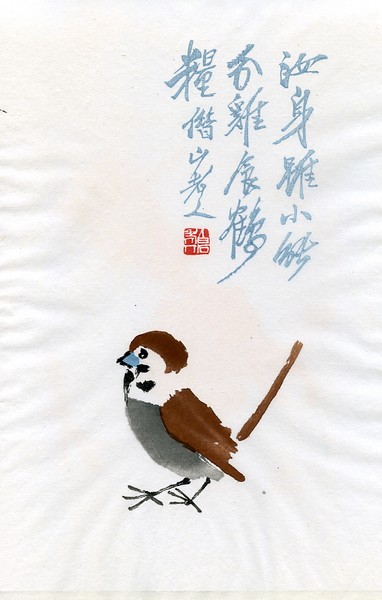 汝身雖小能
分雞食鶴
糧借山老人